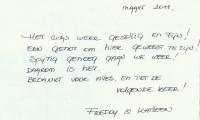 maart 2011.
Het was weer gezellig en fijn!
Een genot om hier geweest te zijn!
Spijtig genoeg gaan we weer!
Daarom is het.
Bedankt voor alles, en tot de
volgende keer!
Freddy & Karleen